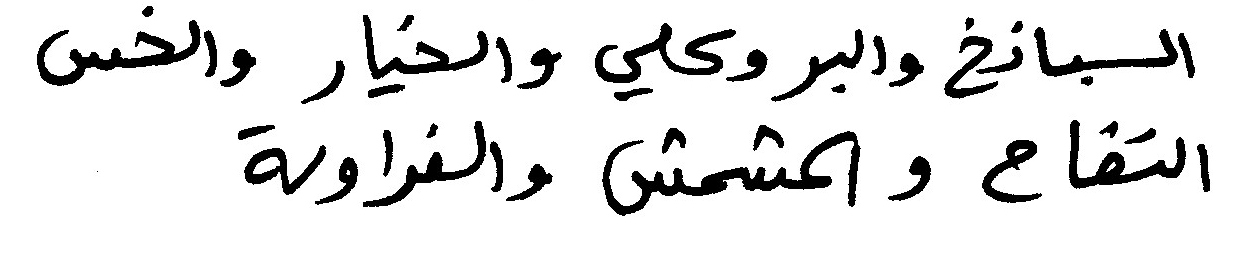 السبانخ والبروكلي والخيار والخس
التفاح والمشمش والفراولة